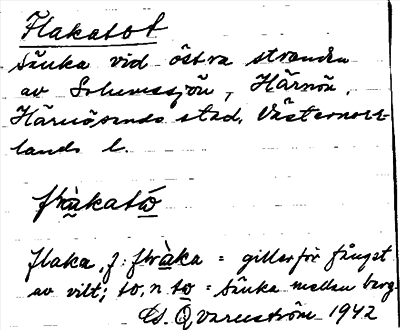 Flakatot
sänka vid östra stranden
av Solumsjön, Härnön,
Härnösands stad, Västernorr-
lands l.
flàkató
flaka, f: flàka = giller för fångst
av vilt; to, n. to = sänka mellan berg.
Qvarnström 1942